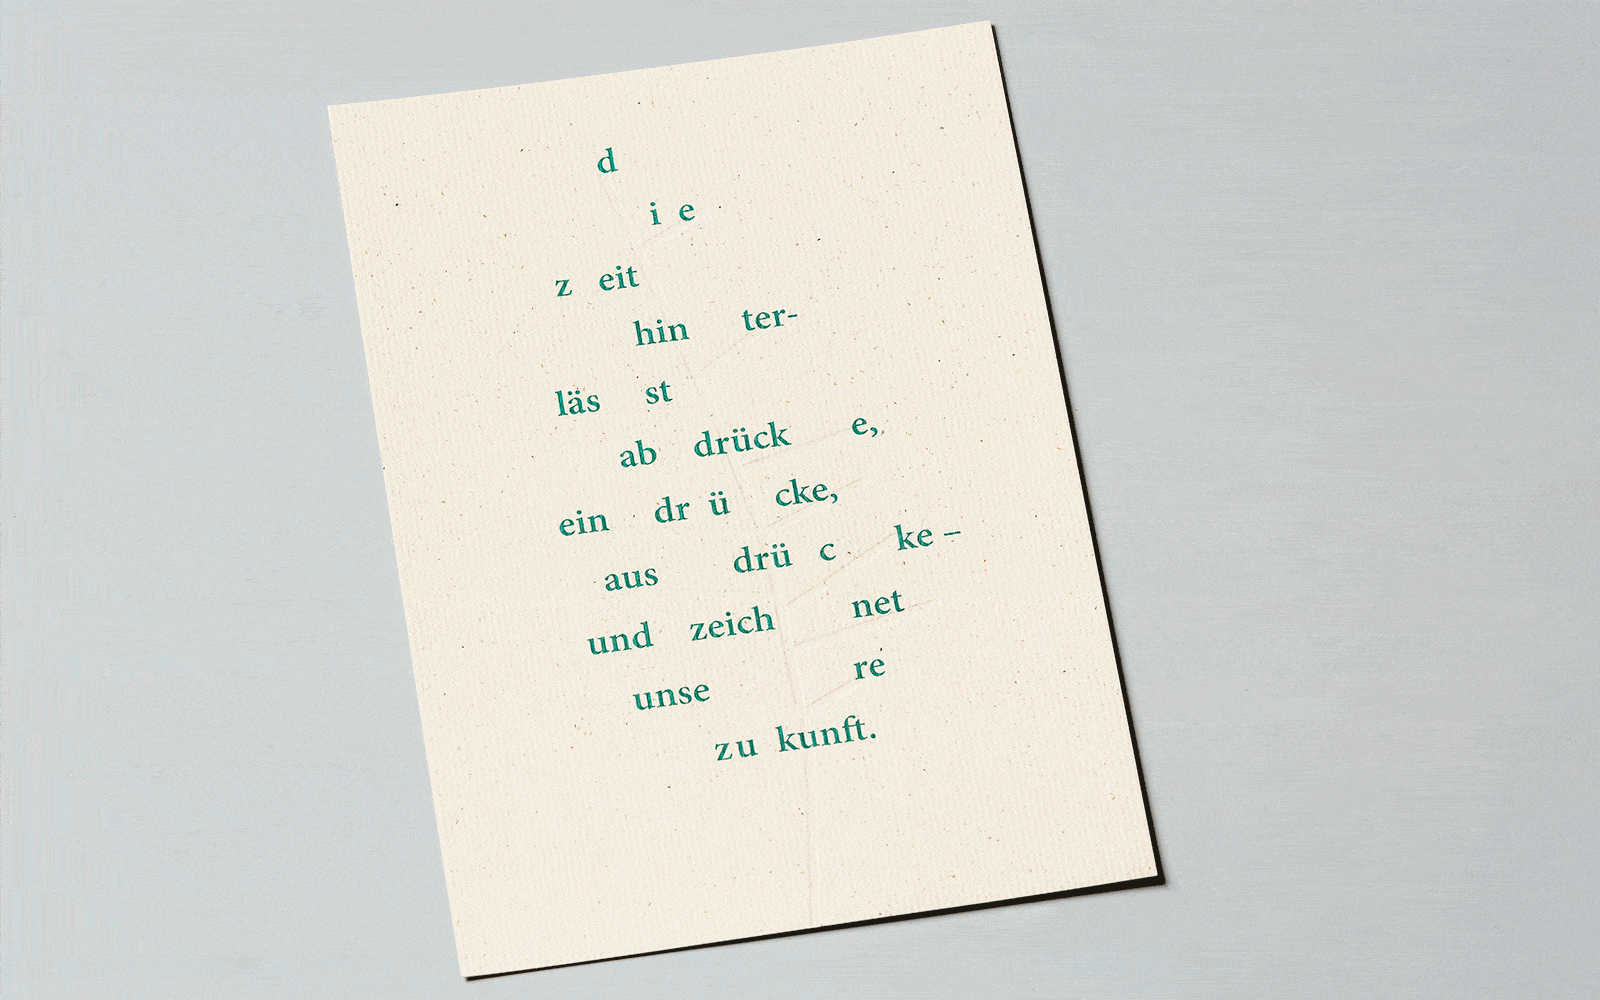 d
i e
z eit
hin ter-
läs st
ab drück e,
ein dr ü cke,
aus drü c ke –
und zeich net
unse re
zu kunft.